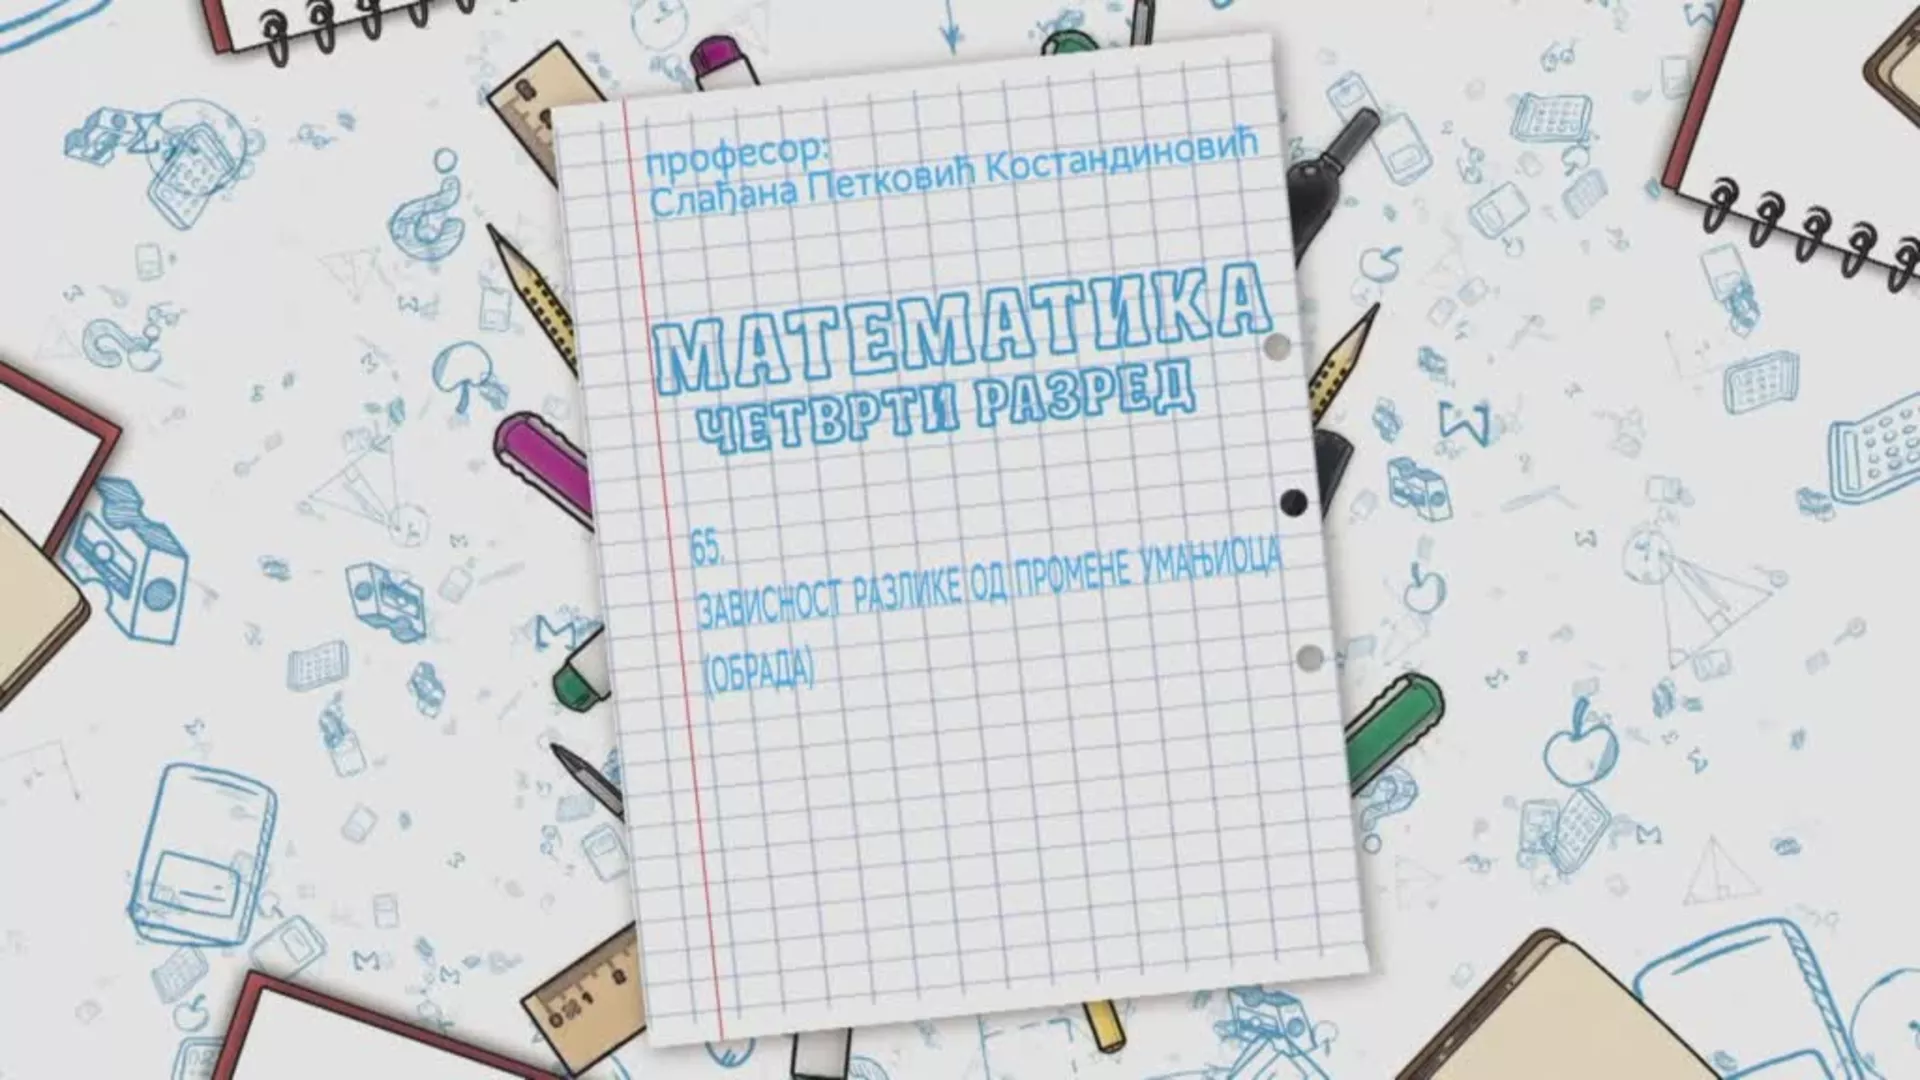 професор:
Слађана Петковић Костандиновић
МАТЕМАТИКА
ЧЕТВРТИ РАЗРЕД
65.
ЗАВИСНОСТ РАЗЛИКЕ ОД ПРОМЕНЕ УМАЊИОЦА
(ОБРАДА)